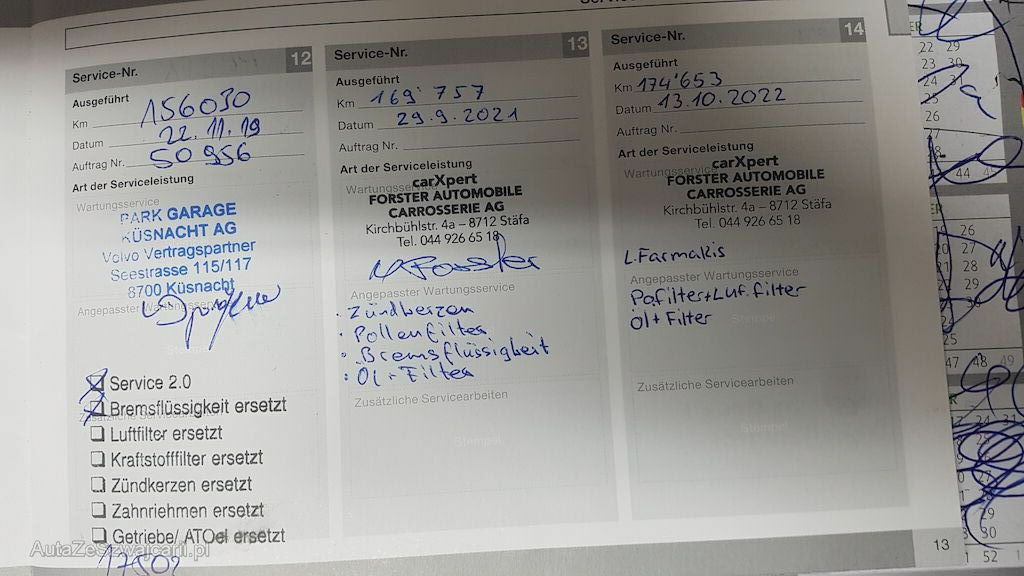 Service-Nr. 12
Ausgeführt
Km 156030
Datum 22.11.19
Auftrag Nr. 50956
Art der Serviceleistung
Wartungsservice
PARK GARAGE
KÜSNACHT AG
Volvo Vertragspartner
Seestrasse 115/117
8700 Küsnacht
Angepasster Wartungsservice
Stempel
Service 2.0
Bremsflüssigkeit ersetzt
Zusätzliche Servicearbeiten
Luftfilter ersetzt
Kraftstofffilter ersetzt
Zündkerzen ersetzt
Zahnriehmen ersetzt
Getriebe/ ATOel ersetzt
Service-Nr. 13
Ausgeführt
Km 169'757
Datum 29.9.2021
Auftrag Nr.
Art der Serviceleistung
Wartungsservice
carXpert
FORSTER AUTOMOBILE
CARROSSERIE AG
Kirchbühlstr. 4a – 8712 Stäfa
Tel. 044 926 65 18
Angepasster Wartungsservice
· Zündkerzen
· Pollenfilter
· Bremsflüssigkeit
· Öl + Filter
Zusätzliche Servicearbeiten
Stempel
Service-Nr. 14
Ausgeführt
Km 174'653
Datum 13.10.2022
Auftrag Nr.
Art der Serviceleistung
Wartungsservice
carXpert
FORSTER AUTOMOBILE
CARROSSERIE AG
Kirchbühlstr. 4a – 8712 Stäfa
Tel. 044 926 65 18
L.Farmakis
Angepasster Wartungsservice
Po.Filter+Luf.filter
Öl+Filter
Stempel
Zusätzliche Servicearbeiten
Stempel
13
AutaZeSzwajcarii.pl